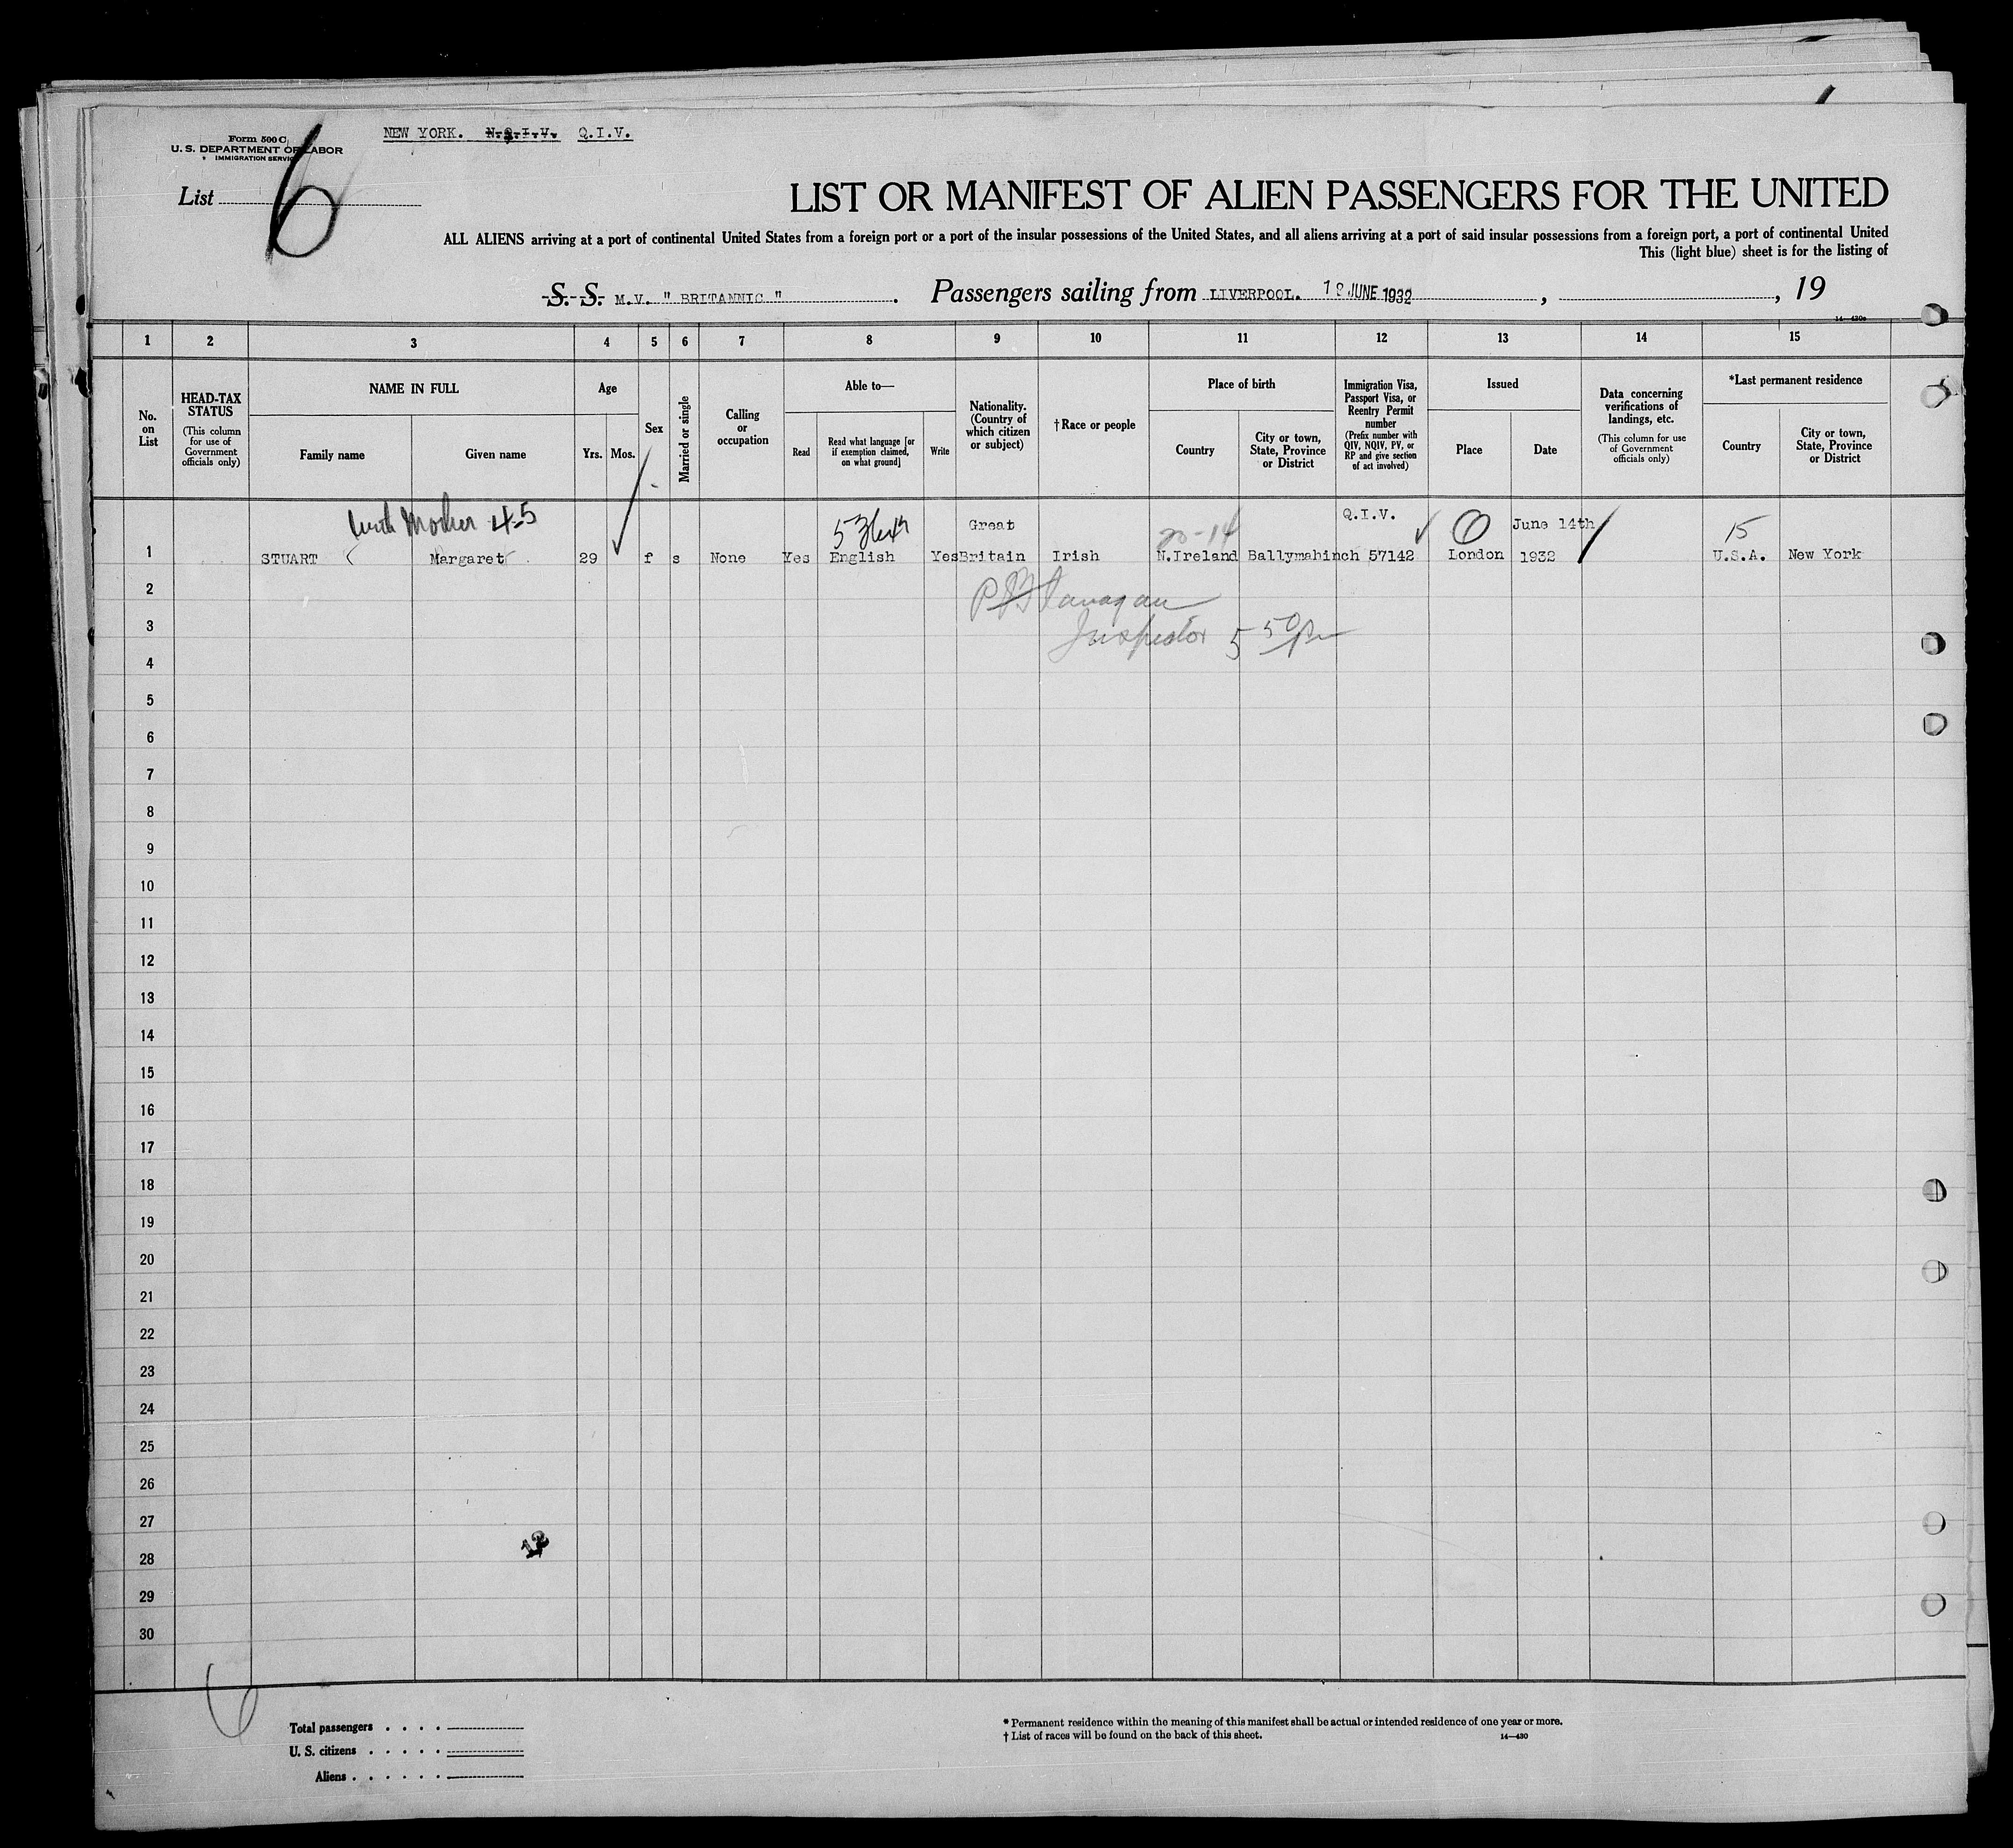 Form 500 C
U. S. DEPARTMENT OF LABOR
IMMIGRATION SERVICE
NEW YORK. N.Q.I.V. Q.I.V.
List 6
LIST OR MANIFEST OF ALIEN PASSENGERS FOR THE UNITED
ALL ALIENS arriving at a port of continental United States from a foreign port or a port of the insular possessions of the United States, and all aliens arriving at a port of said insular possessions from a foreign port, a port of continental United
This (light blue) sheet is for the listing of
S. S. M.V. " BRITANNIC " . Passengers sailing from LIVERPOOL. JUNE 1932 , , 19
1 2 3 4 5 6 7 8 9 10 11 12 13 14 15
No. on List
HEAD-TAX STATUS (This column for use of Government officials only)
NAME IN FULL
Family name
Given name
Age
Yrs. Mos.
Sex
Married or single
Calling or occupation
Able to—
Read
Read what language [or if exemption claimed, on what ground]
Write
Nationality. (Country of which citizen or subject)
†Race or people
Place of birth
Country
City or town, State, Province or District
Immigration Visa, Passport Visa, or Reentry Permit number (Prefix number with QIV, NQIV, PV, or RP and give section of act involved)
Issued
Place
Date
Data concerning verifications of landings, etc. (This column for use of Government officials only)
*Last permanent residence
Country
City or town, State, Province or District
with Mother 4-5 Great Q.I.V. June 14th 15
1 STUART Margaret 29 f s None Yes English Yes Britain Irish N.Ireland Ballymahinch 57142 London 1932 U.S.A. New York
2
Inspector 5 50 pm
3
4
5
6
7
8
9
10
11
12
13
14
15
16
17
18
19
20
21
22
23
24
25
26
27
28
29
30
6
Total passengers . . . .
U. S. citizens . . . . .
Aliens . . . . . .
* Permanent residence within the meaning of this manifest shall be actual or intended residence of one year or more.
† List of races will be found on the back of this sheet.
14—430